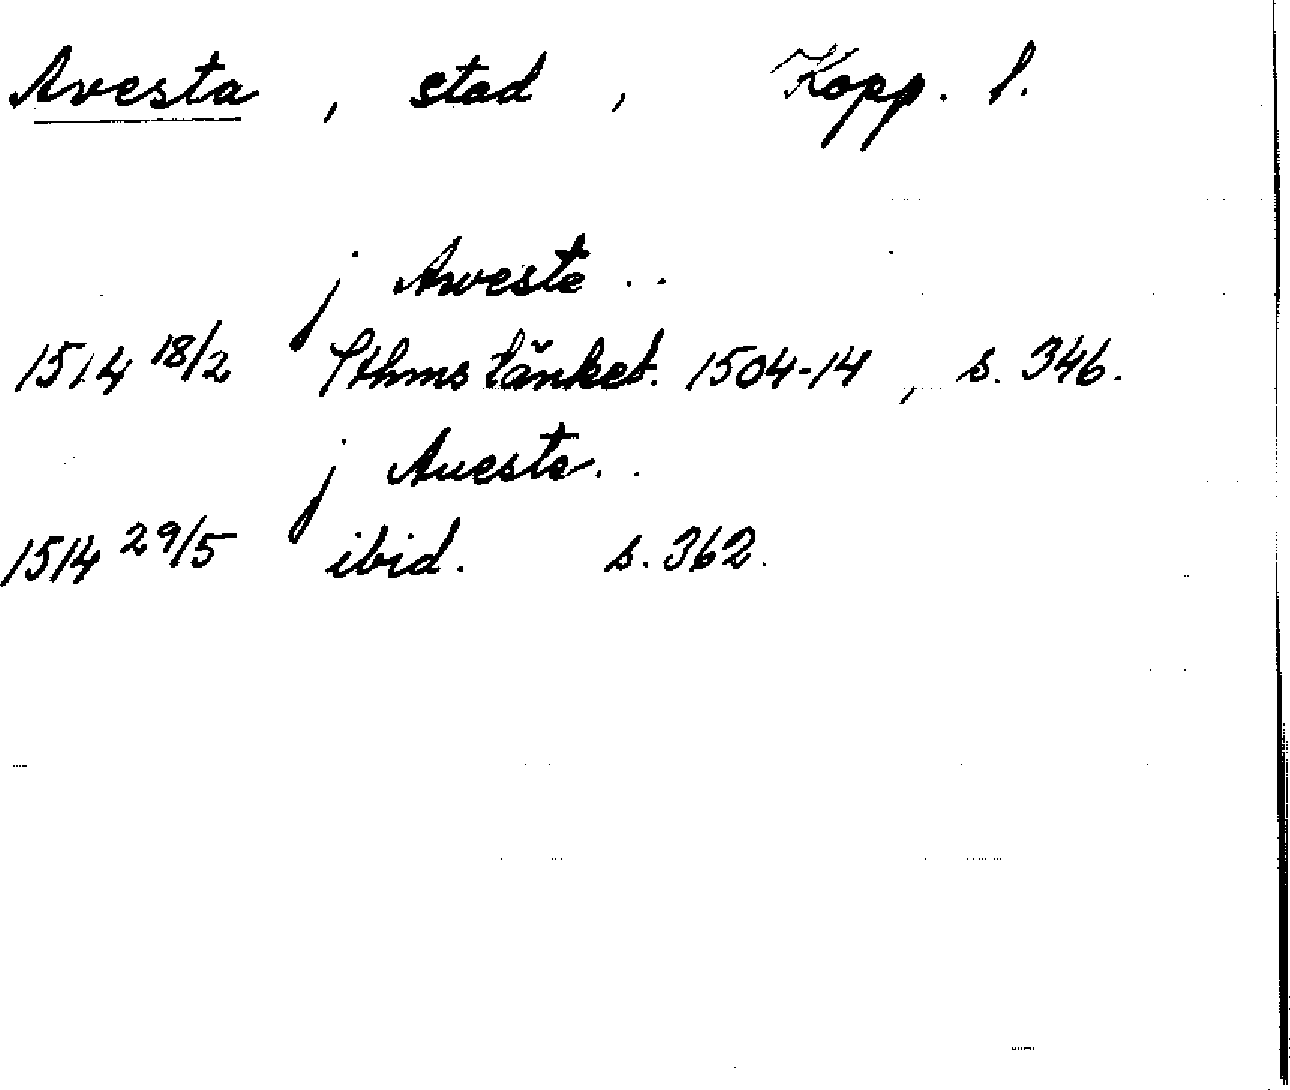 Avesta, stad, Kopp. l.
j Aweste..
1514 18/2 Sthms tänkeb. 1504-14, s. 346.
j Aueste..
1514 29/5 ibid. s. 362.